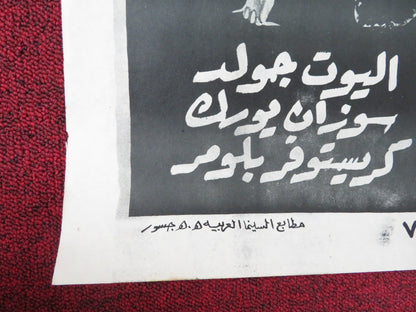 اليوت جولد
سوزان يورك
كريستوفر بلومر
مطابع السينما العربيه ه.ه جسور
٧